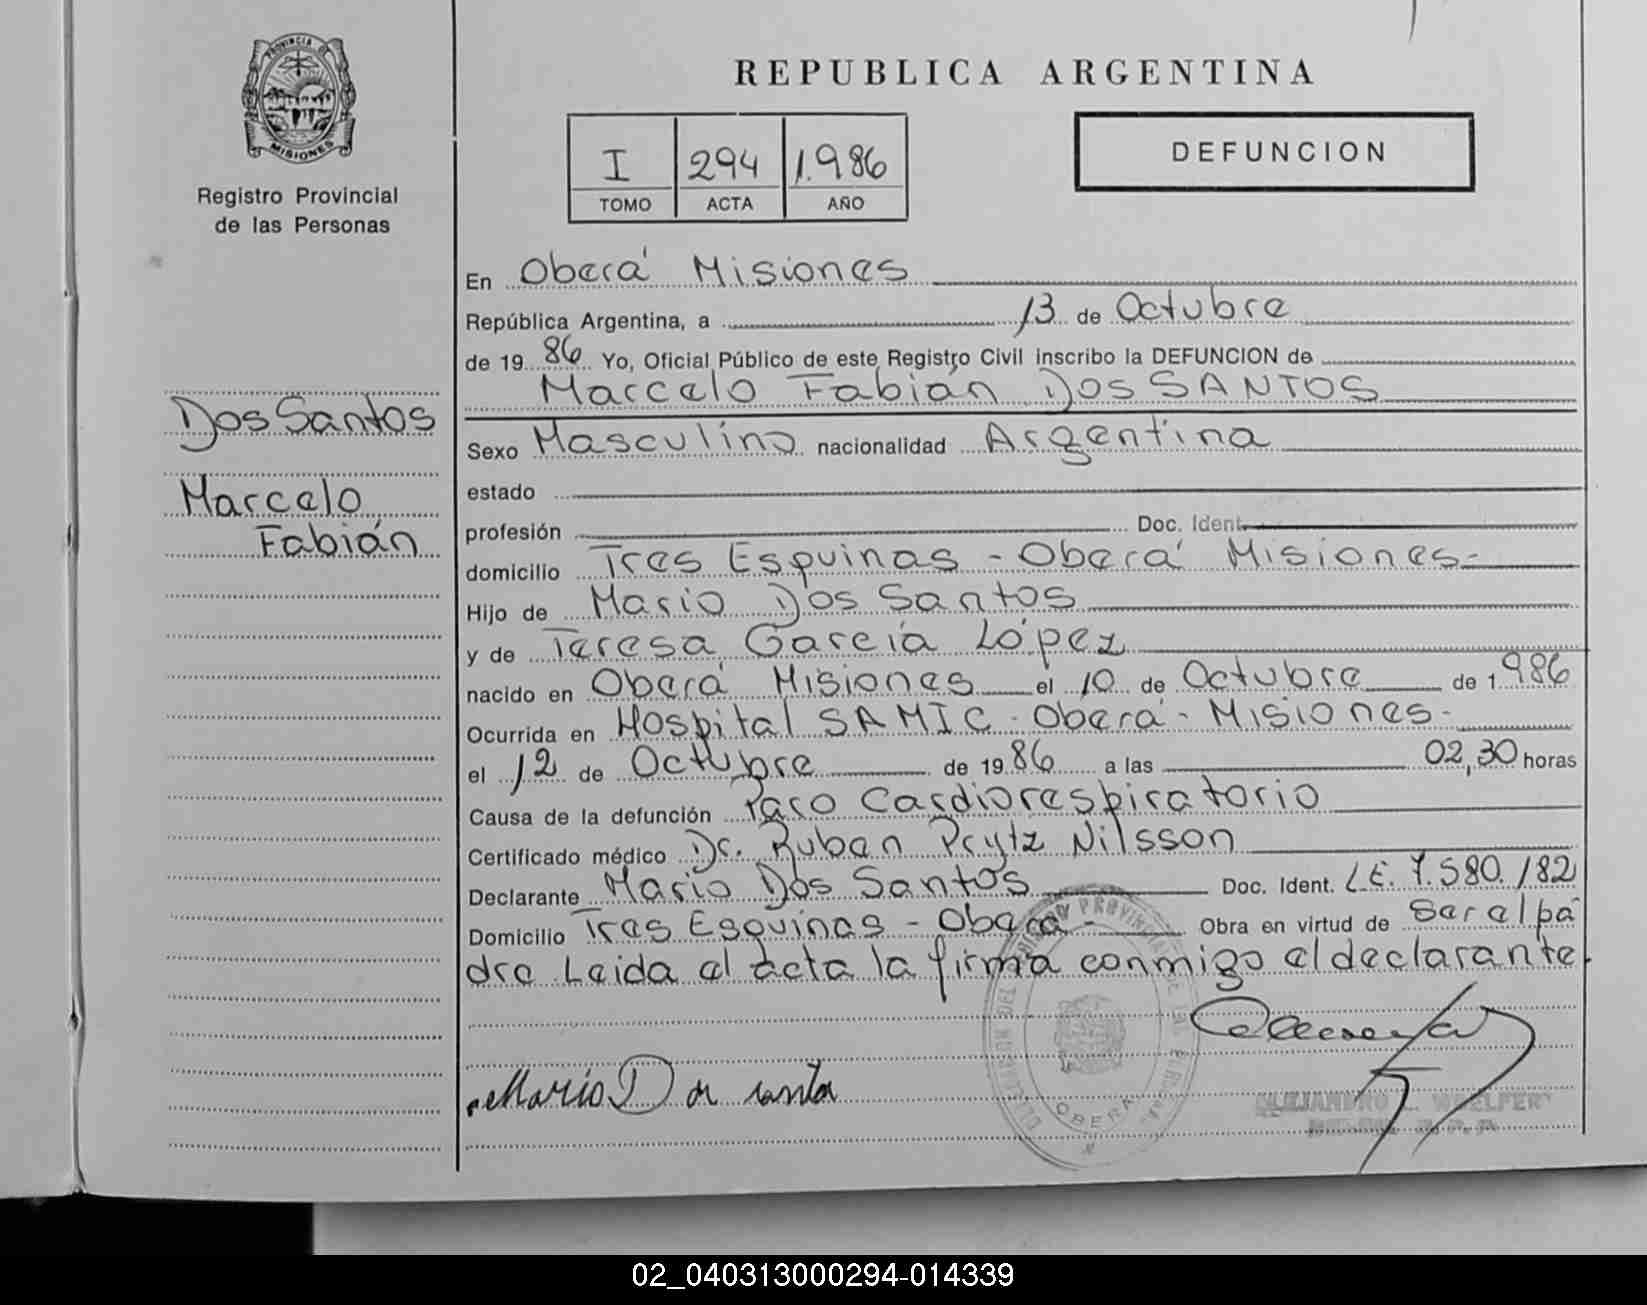 PROVINCIA DE
MISIONES
Registro Provincial
de las Personas
Dos Santos
Marcelo
Fabián
REPUBLICA ARGENTINA
I 294 1.986
TOMO ACTA AÑO
DEFUNCION
En Oberá Misiones
República Argentina, a 13 de Octubre
de 19 86 Yo, Oficial Público de este Registro Civil inscribo la DEFUNCION de
Marcelo Fabián Dos SANTOS
Sexo Masculino nacionalidad Argentina
estado
profesión Doc. Ident.
domicilio Tres Esquinas - Oberá Misiones-
Hijo de Mario Dos Santos
y de Teresa García López
nacido en Oberá Misiones el 10 de Octubre de 1986
Ocurrida en Hospital SAMIC - Oberá - Misiones-
el 12 de Octubre de 19 86 a las 02,30 horas
Causa de la defunción Paro Cardiorespiratorio
Certificado médico Dr. Ruben Prytz Nilsson
Declarante Mario Dos Santos Doc. Ident. L.E. 7.580.182
Domicilio Tres Esquinas - Oberá - Obra en virtud de Ser el pá
dre Leida el acta la firma conmigo el declarante.
Mario D
OBERA
02_040313000294-014339